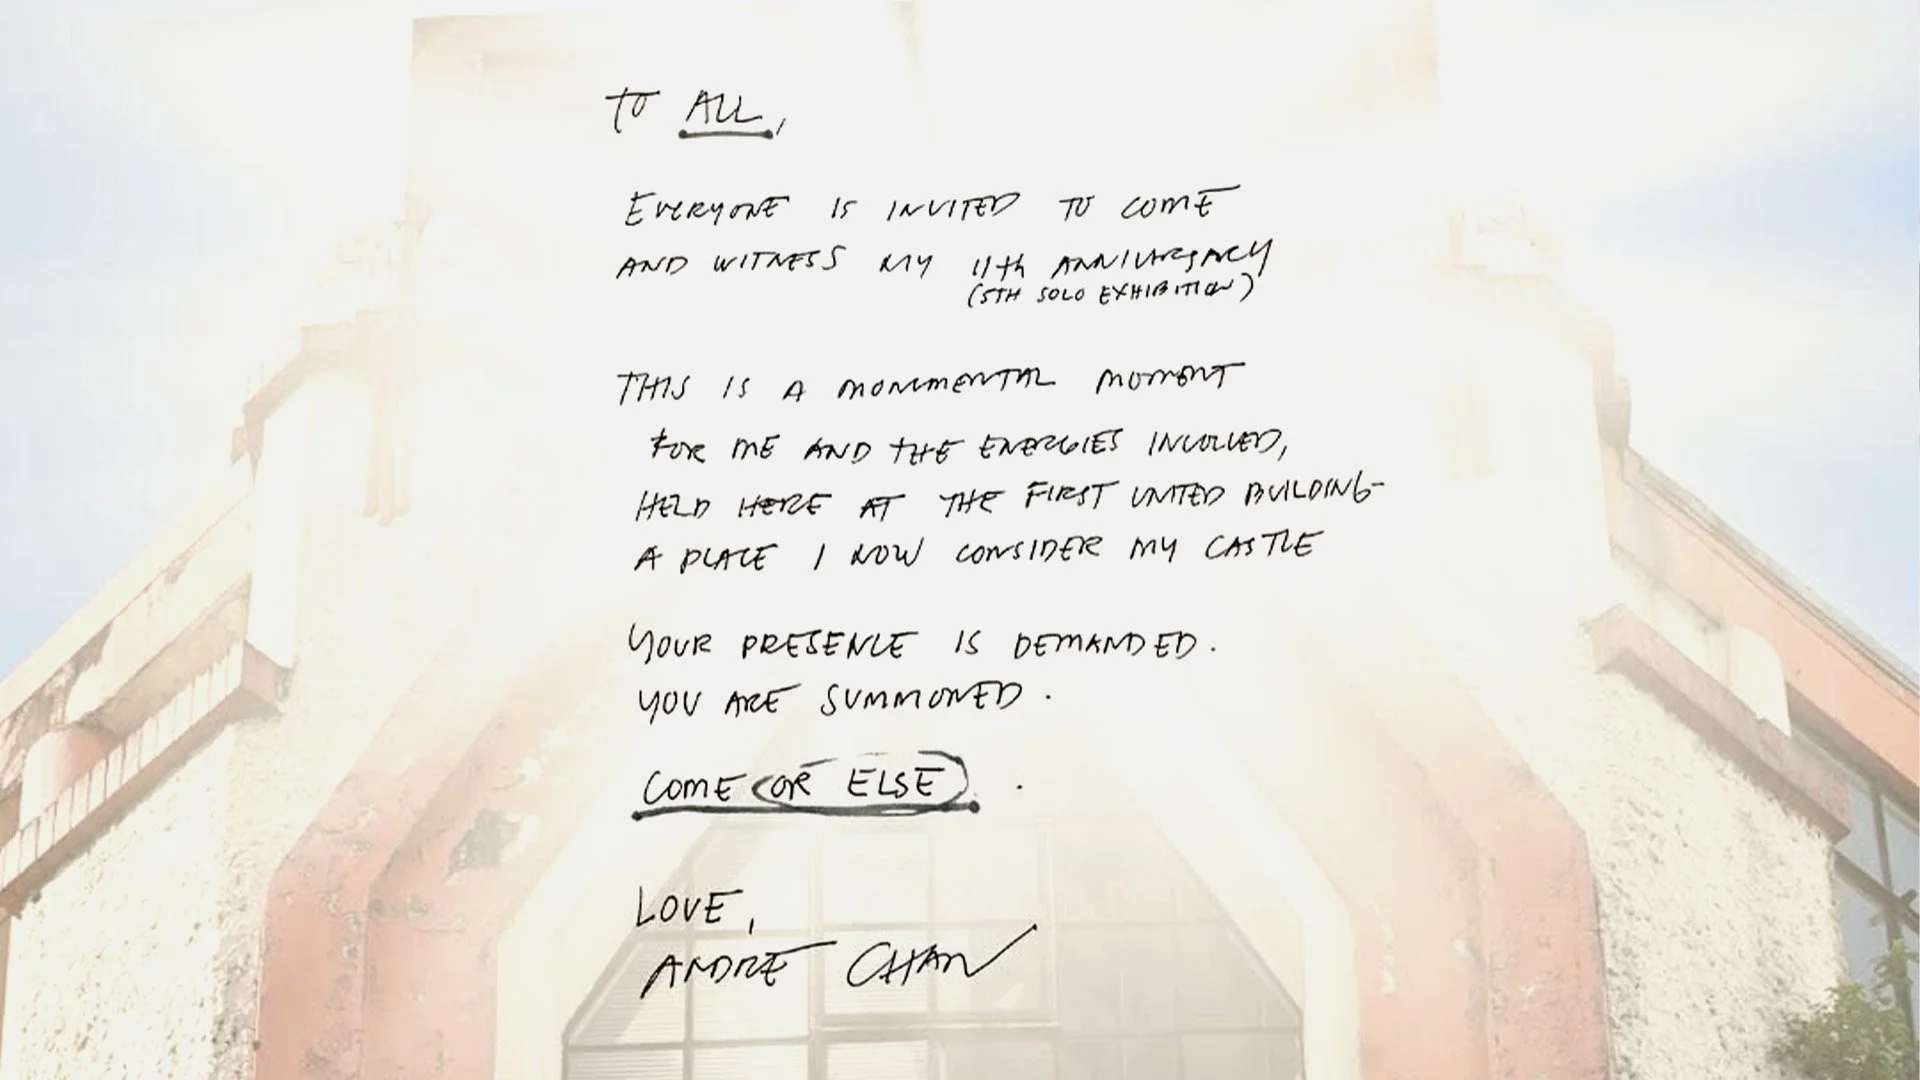 TO ALL,
EVERYONE IS INVITED TO COME
AND WITNESS MY 11th ANNIVERSARY
(5TH SOLO EXHIBITION)
THIS IS A MONUMENTAL MOMENT
FOR ME AND THE ENERGIES INVOLVED,
HELD HERE AT THE FIRST UNITED BUILDING-
A PLACE I NOW CONSIDER MY CASTLE
YOUR PRESENCE IS DEMANDED.
YOU ARE SUMMONED.
COME OR ELSE.
LOVE,
ANDRE CHAN